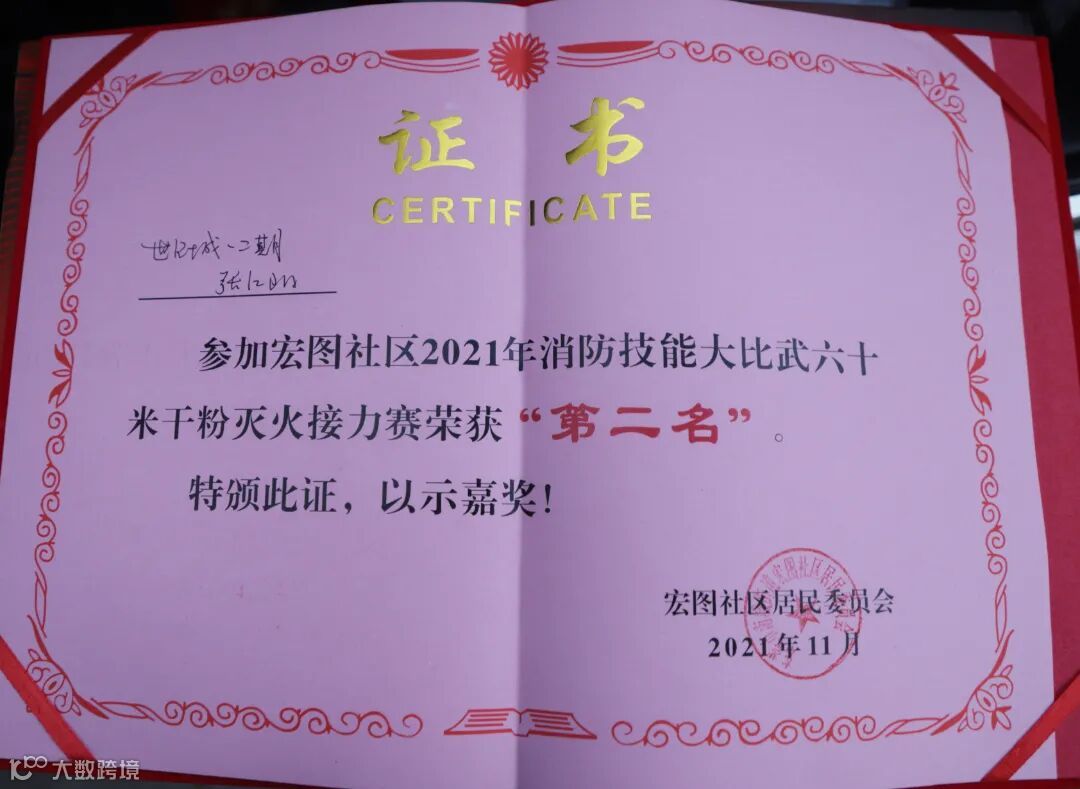 证书
CERTIFICATE
世纪城·二期
参加宏图社区2021年消防技能大比武六十
米干粉灭火接力赛荣获“第二名”。
特颁此证，以示嘉奖！
宏图社区居民委员会
2021年11月
大数跨境